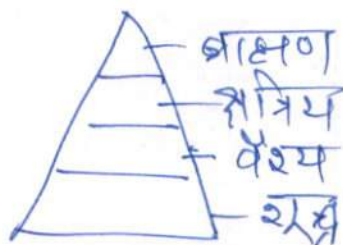 ब्राह्मण
क्षत्रिय
वैश्य
शूद्र